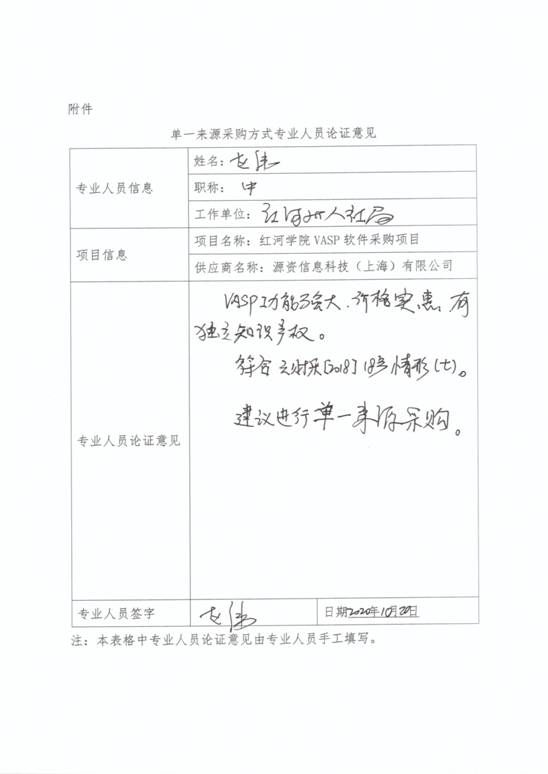 附件
单一来源采购方式专业人员论证意见
专业人员信息
姓名：赵伟
职称：中
工作单位：红河州人社局
项目信息
项目名称：红河学院 VASP 软件采购项目
供应商名称：源资信息科技（上海）有限公司
专业人员论证意见
VASP功能强大、价格实惠，有
独立知识产权。
符合云财采[2018]18号情形(七)。
建议进行单一来源采购。
专业人员签字
赵伟
日期2020年10月20日
注：本表格中专业人员论证意见由专业人员手工填写。